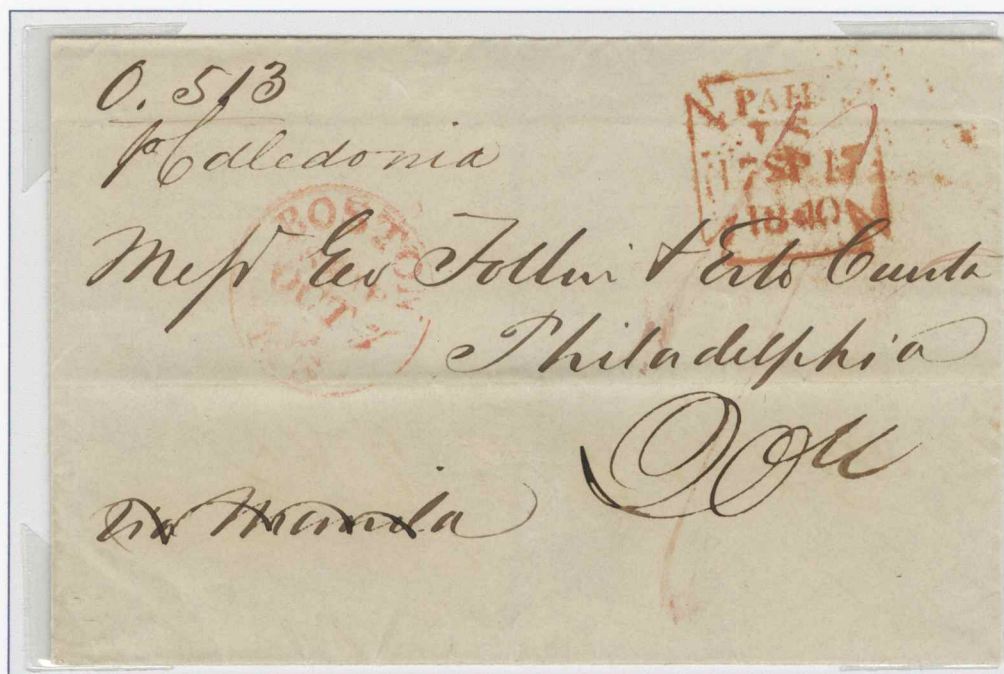 O. 513
p Caledonia
PAID
TS
17 SP 17
1840
BOSTON
OCT
Mess Geo Follin &
Philadelphia
via Manila